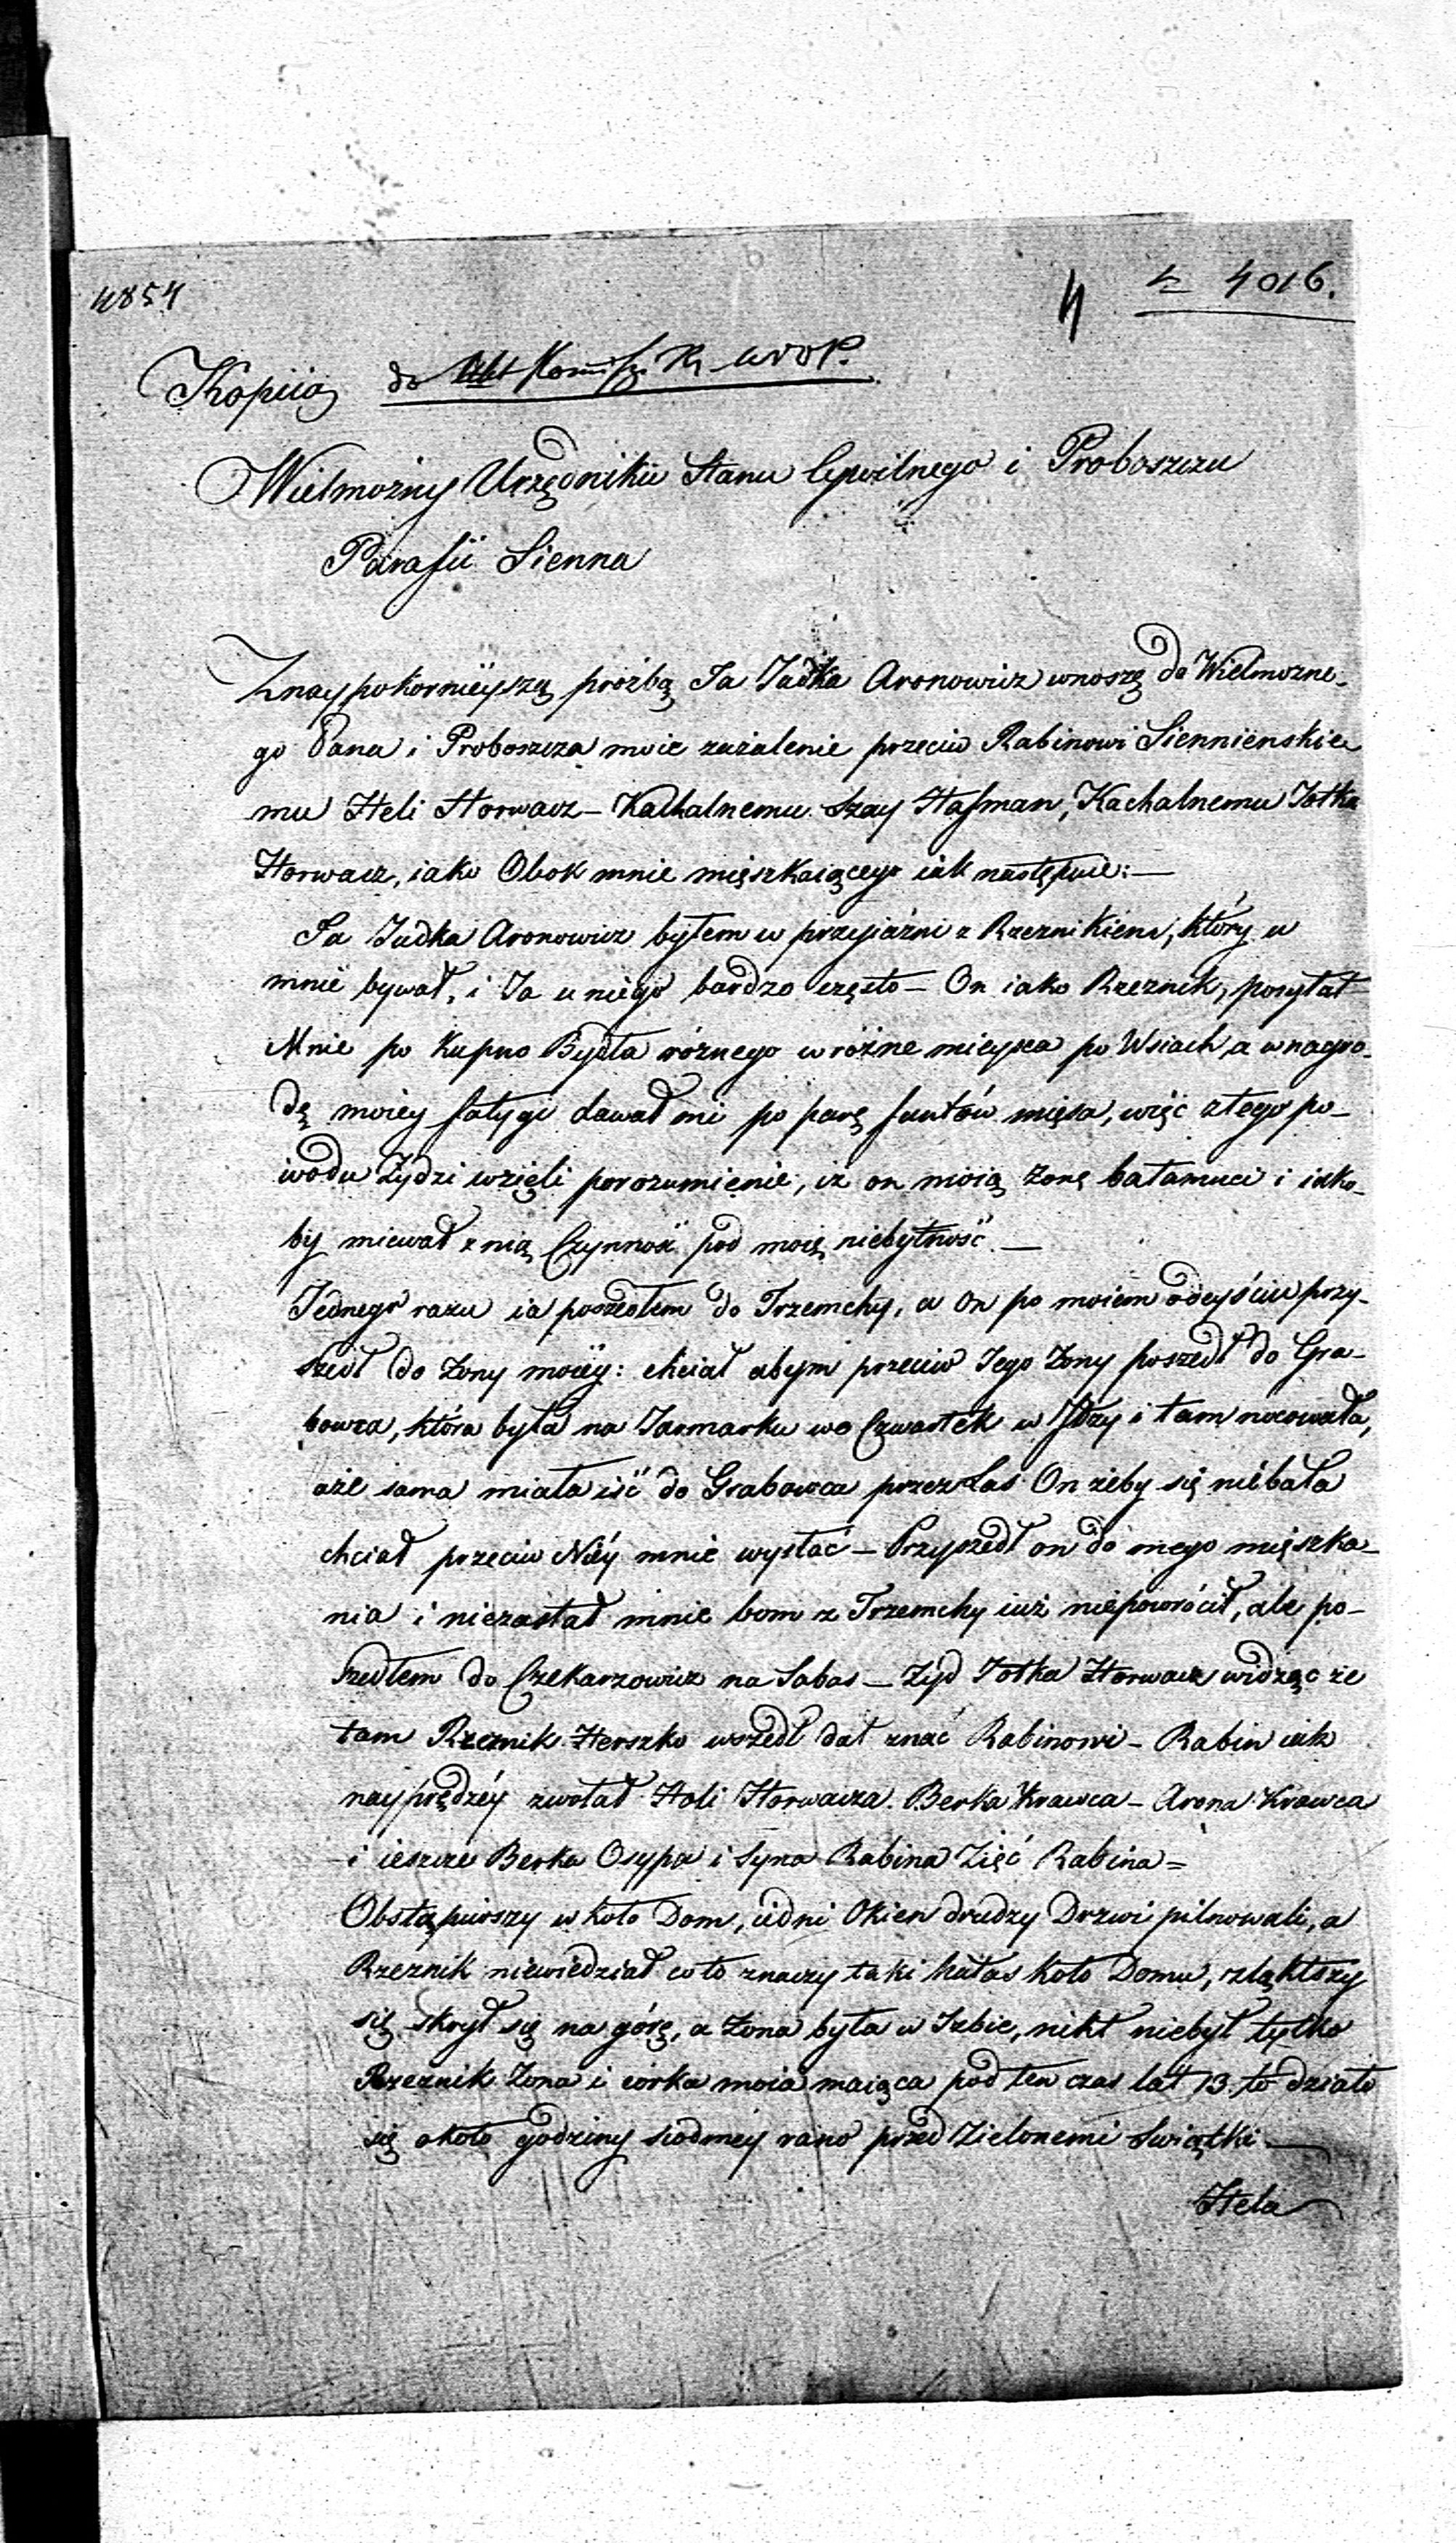 4854
4 4016.
Kopiia do Komiss. R. W. O. P.
Wielmożny Urzędniku Stanu Cywilnego i Proboszczu
Parafii Sienna
Z naypokornieyszą prożbą Ja Judka Aronowicz wnoszę do Wielmożne-
go Pana i Proboszcza moie zażalenie przeciw Rabinowi Siennienskie
mu Heli Horwacz – Kachalnemu Szay Hafman, Kachalnemu Jotka
Horwacz, iako Obok mnie mięszkaiącego iak następuie: —
Ja Judka Aronowicz byłem w przyjaźni z Rzeznikiem, który u
mnie bywał, i Ja u niego bardzo często – On iako Rzeznik, posyłał
Mnie po kupno Bydła różnego w różne mieysca po Wsiach, a w nagro-
dę moiey fatygi dawał mi po parę funtów mięsa, więc z tego po-
wodu Żydzi wzięli porozumienie, iż on moią żonę bałamuci i iako-
by miewał z nią Czynność pod moię niebytność. —
Jednego razu ia poszedłem do Trzemchy, a On po moiem odeyściu przy-
szedł do żony moiey: chciał abym przeciw Jego Żony poszedł do Gra-
bowca, która była na Jarmarku we Czwartek w Iłży i tam nocowała,
aże sama miała iść do Grabowca przez Las On żeby się niebała
chciał przeciw Niéy mnie wysłać – Przyszedł on do mego mięszka-
nia i niezastał mnie bom z Trzemchy iuż niepowrócił, ale po-
szedłem do Czekarzowicz na Sabas – Żyd Jotka Horwacz widząc że
tam Rzeznik Herszko wszedł dał znać Rabinowi – Rabin iak
nayprędzéy zwołał Heli Horwacza. Berka Krawca – Arona Krawca
i ieszcze Berka Osypa i Syna Rabina Zięć Rabina =
Obstąpiwszy w koło Dom, iedni Okien drudzy Drzwi pilnowali, a
Rzeznik niewiedział co to znaczy taki hałas koło Domu, zlękłszy
się skrył się na górę, a Żona była w Izbie, nikt niebył tylko
Rzeznik Żona i córka moia maiąca pod ten czas lat 13. to działo
się około godziny siodméy rano przed Zielonemi Swiątki —
Hela